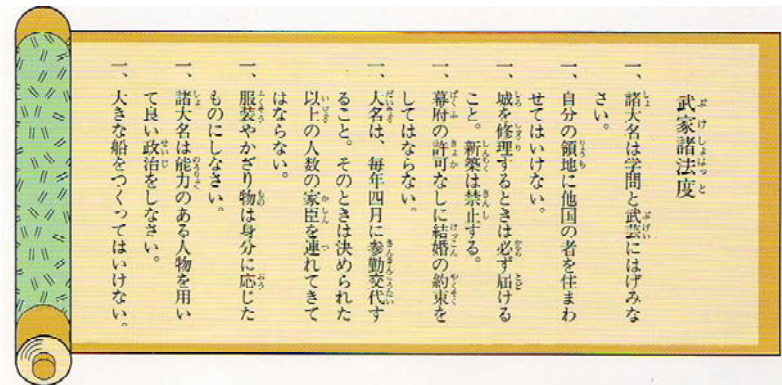 武家諸法度
一、諸大名は学問と武芸にはげみな
さい。
一、自分の領地に他国の者を住まわ
せてはいけない。
一、城を修理するときは必ず届ける
こと。新築は禁止する。
一、幕府の許可なしに結婚の約束を
してはならない。
一、大名は、毎年四月に参勤交代す
ること。そのときは決められた
以上の人数の家臣を連れてきて
はならない。
一、服装やかざり物は身分に応じた
ものにしなさい。
一、諸大名は能力のある人物を用い
て良い政治をしなさい。
一、大きな船をつくってはいけない。